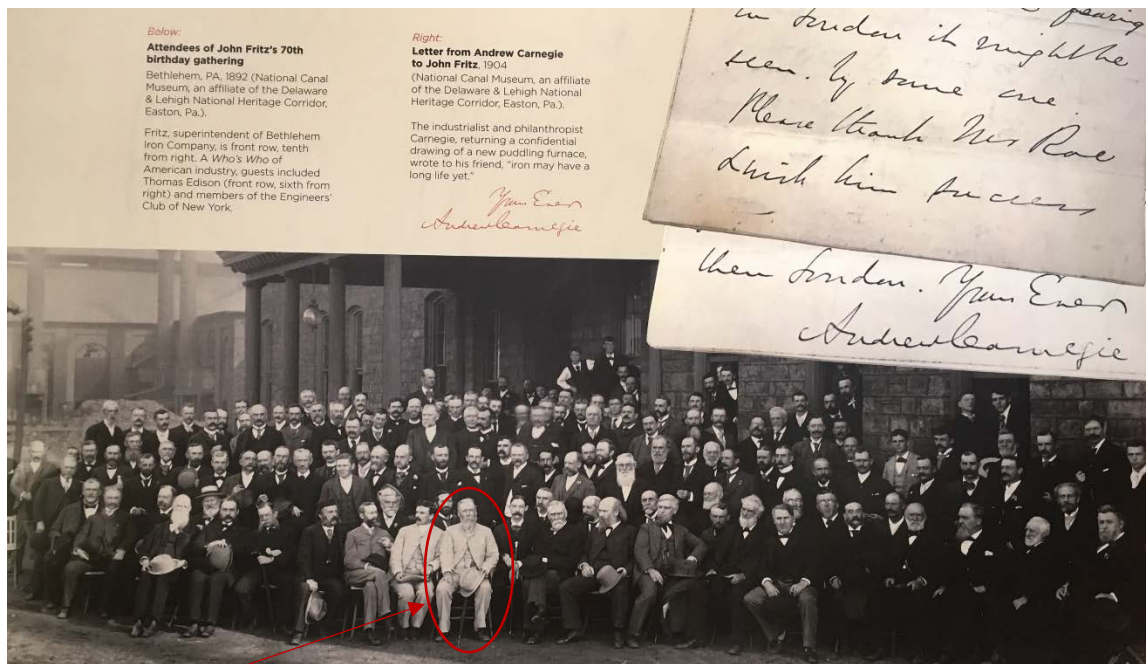 Below:
Attendees of John Fritz's 70th
birthday gathering
Bethlehem, PA, 1892 (National Canal
Museum, an affiliate of the Delaware
& Lehigh National Heritage Corridor,
Easton, Pa.).
Fritz, superintendent of Bethlehem
Iron Company, is front row, tenth
from right. A Who's Who of
American industry, guests included
Thomas Edison (front row, sixth from
right) and members of the Engineers'
Club of New York.
Right:
Letter from Andrew Carnegie
to John Fritz, 1904
(National Canal Museum, an affiliate
of the Delaware & Lehigh National
Heritage Corridor, Easton, Pa.).
The industrialist and philanthropist
Carnegie, returning a confidential
drawing of a new puddling furnace,
wrote to his friend, "iron may have a
long life yet."
Yours Ever
Andrew Carnegie
in London it might be
seen. by some one
Please thank Mr Roe
& wish him success
then London. Yours Ever
Andrew Carnegie